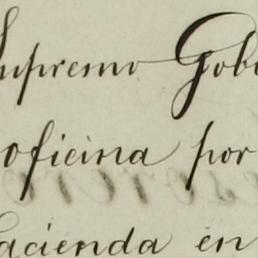 Supremo Gob
oficina por
hacienda en